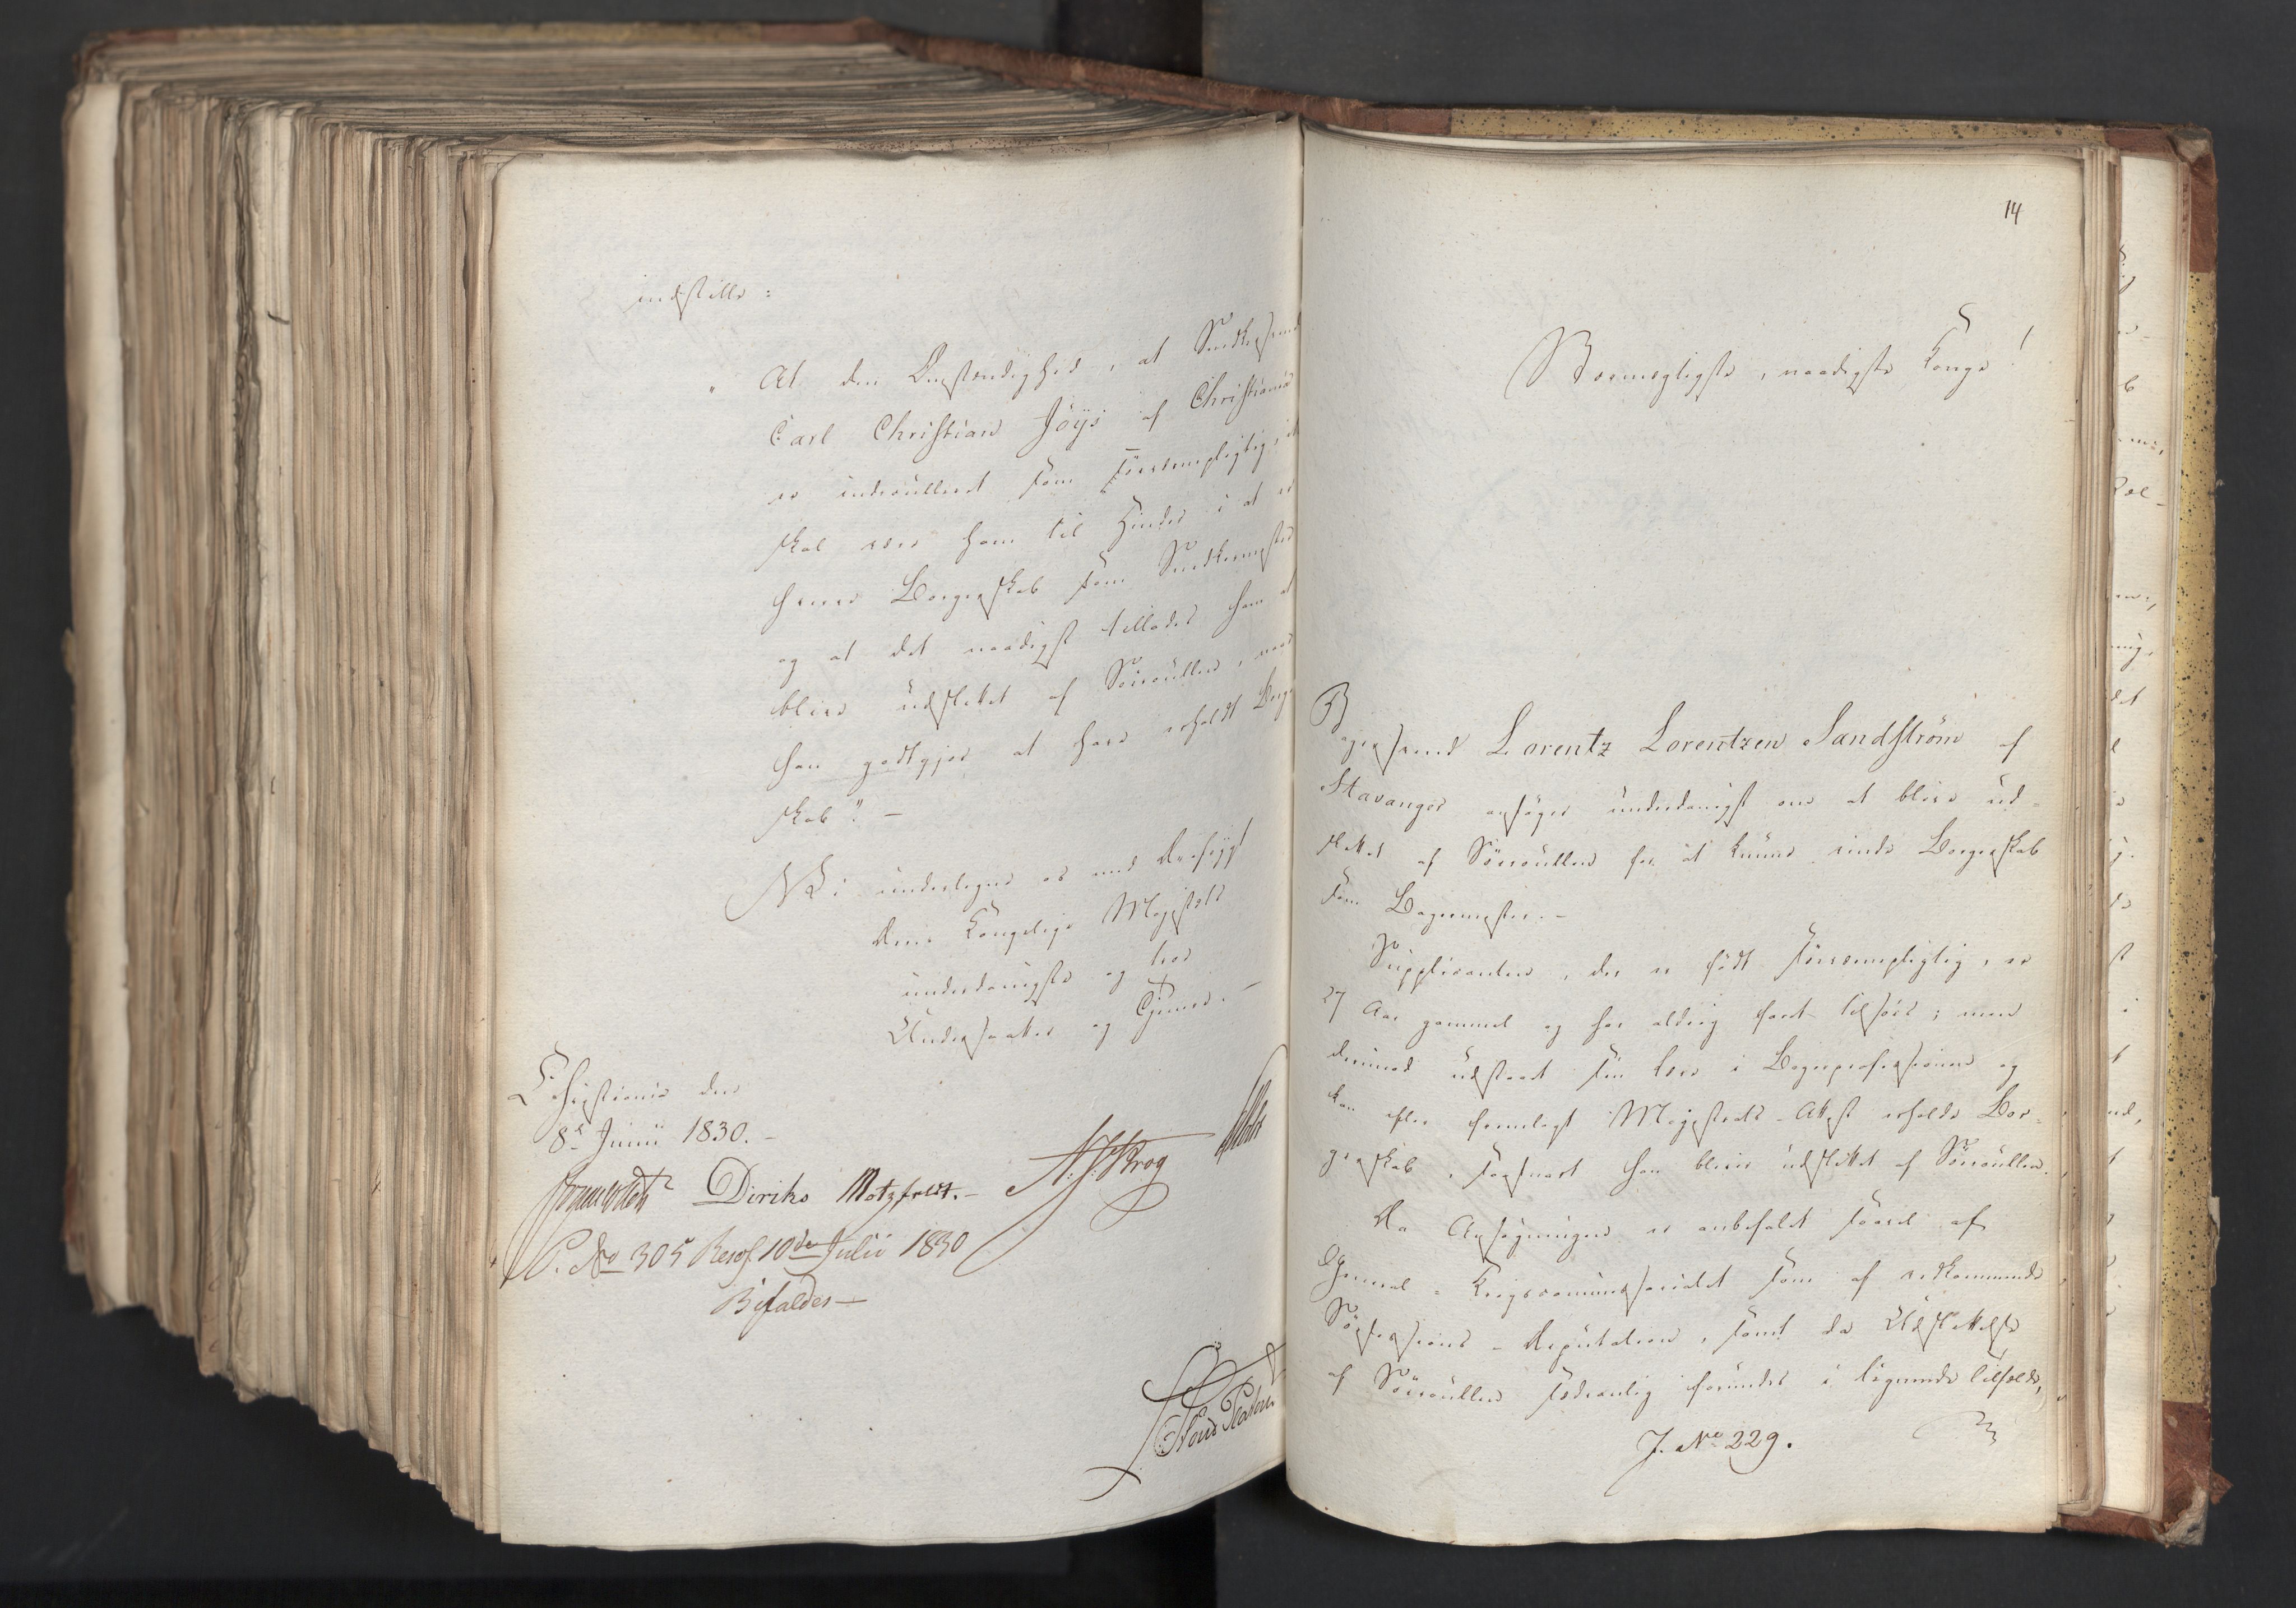 indstille:
" At den Omstændighed, at Snedkersvend
Carl Christian Jöys af Christiania
er indroulleret som Söeværnepligtig, ei
skal være ham til Hinder i at er
hverve Borgerskab som Snedkermester
og at det naadigst tillades ham at
blive udslettet af Söeroullen, naar
han godtgjør at have erholdt Borger
skab". -
Vi undertegne os med Dybeste Ærefrygt
Deres Kongelige Majestæts
underdanigste og troe
Undersaatter og Tjenere. -
Christiania den
8de Junii 1830. -
Diriks Motzfeldt. -
P. No 305 Resol. 10de Julii 1830
Bifaldes -
14
Stormægtigste, naadigste Konge!
Bagersvend Lorentz Lorentzen Sandström af
Stavanger ansöger underdanigst om at blive ud-
slettet af Söeroullen for at kunne vinde Borgerskab
som Bagermester. -
Supplicanten, der er födt Söeværnepligtig, er
27 Aar gammel og har aldrig faret tilsöes; men
derimod udstaaet sin Lære i Bagerprofessionen og
kan efter fremlagt Magistrats-Attest erholde Bor-
gerskab, saasnart han bliver udslettet af Söeroullen.
Da Ansögningen er anbefalet saavel af
General-Krigscommissariatet som af vedkommende
Sösessions-Deputation, samt da Udslettelse
af Söeroullen sædvanlig forundes i lignende Tilfælde,
J. No 229.